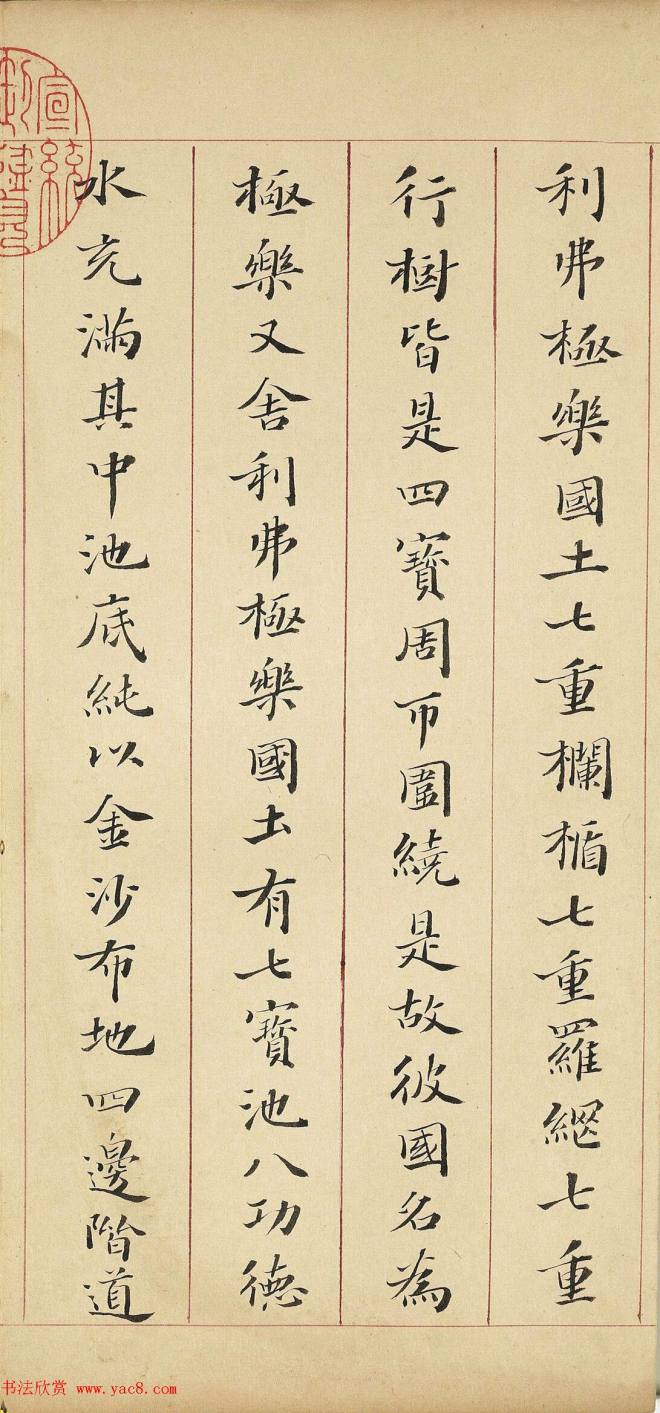 利弗極樂國土七重欄楯七重羅網七重
行樹皆是四寶周帀圍繞是故彼國名為
極樂又舍利弗極樂國土有七寶池八功德
水充滿其中池底純以金沙布地四邊階道
宣統
書法欣赏 www.yac8.com